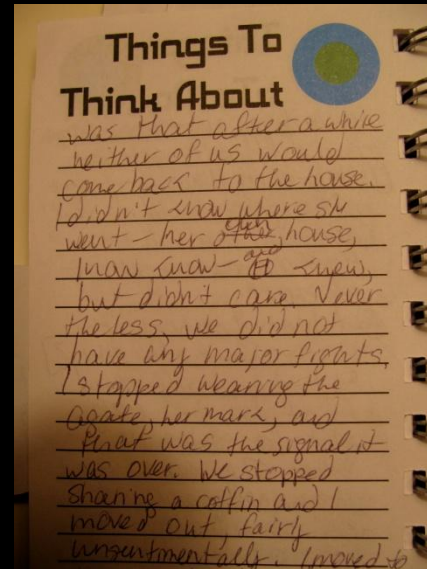 Things To
Think About
was that after a while
neither of us would
come back to the house.
I didn't know where she
went – her own house,
I now know – and knew,
but didn't care. Never
theless, we did not
have any major fights,
I stopped wearing the
agate, her mark, and
that was the signal it
was over. We stopped
sharing a coffin and I
moved out, fairly
unsentimentally. I moved to